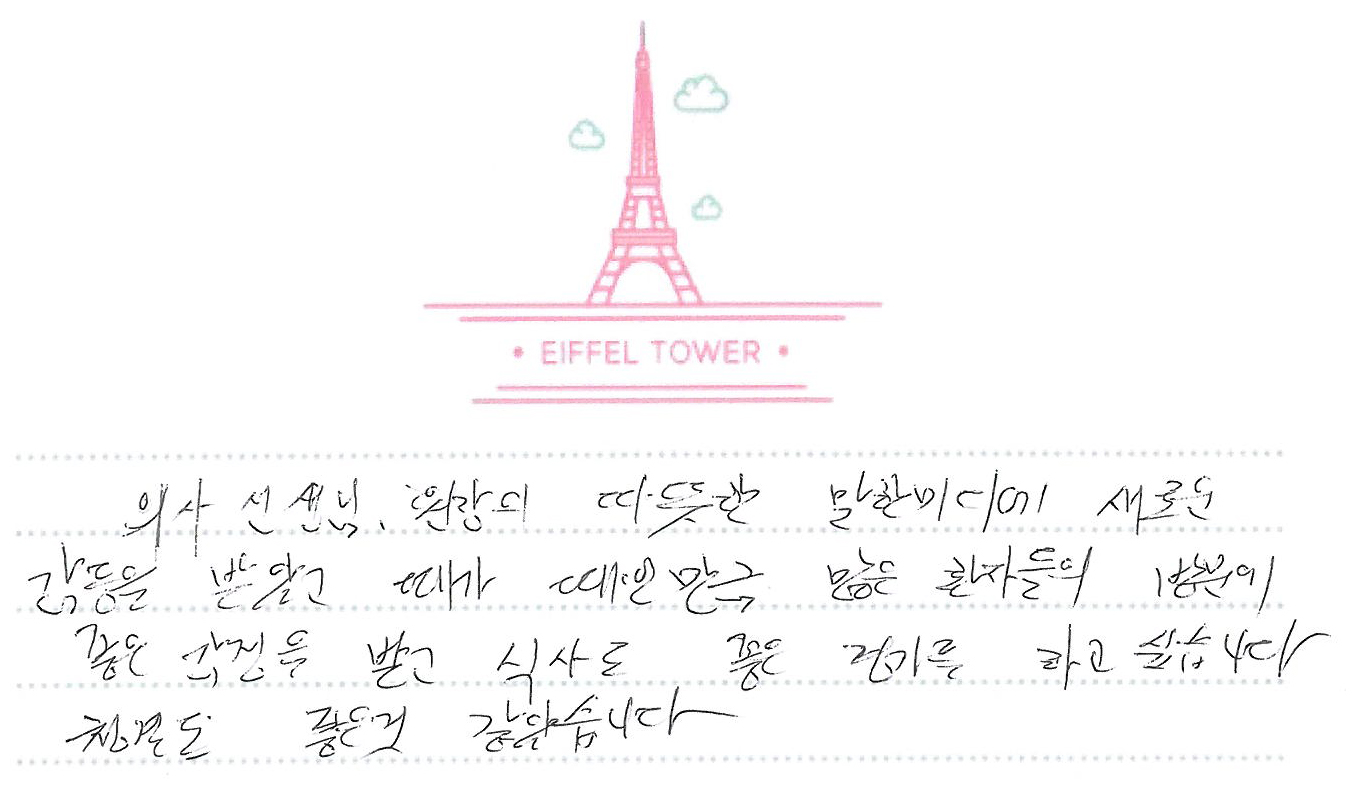 • EIFFEL TOWER •
의사 선생님, 원장의 따뜻한 말한미디에 새로운
감동을 받았고 때가 때인만큼 많은 환자들의
좋은 감정을 받고 식사도 좋은 하고 싶습니다
친절도 좋은것 같았습니다